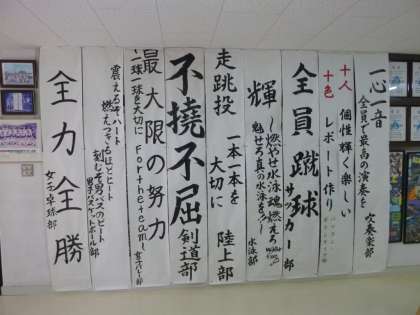 一心一音
全員で最高の演奏を
吹奏楽部
十人
十色
個性輝く楽しい
レポート作り
全員蹴球
サッカー部
輝
〜燃やせ水泳魂燃えろ
魅せろ真の水泳を!!〜
水泳部
走跳投
一本一本を
大切に
陸上部
不撓不屈
剣道部
最大限の努力
〜一球一球を大切に For the team〜
女子バレー部
震えるぞハート
燃えつきるほどヒート
刻むぞ男バスのビート
男子バスケットボール部
全力全勝
女子卓球部